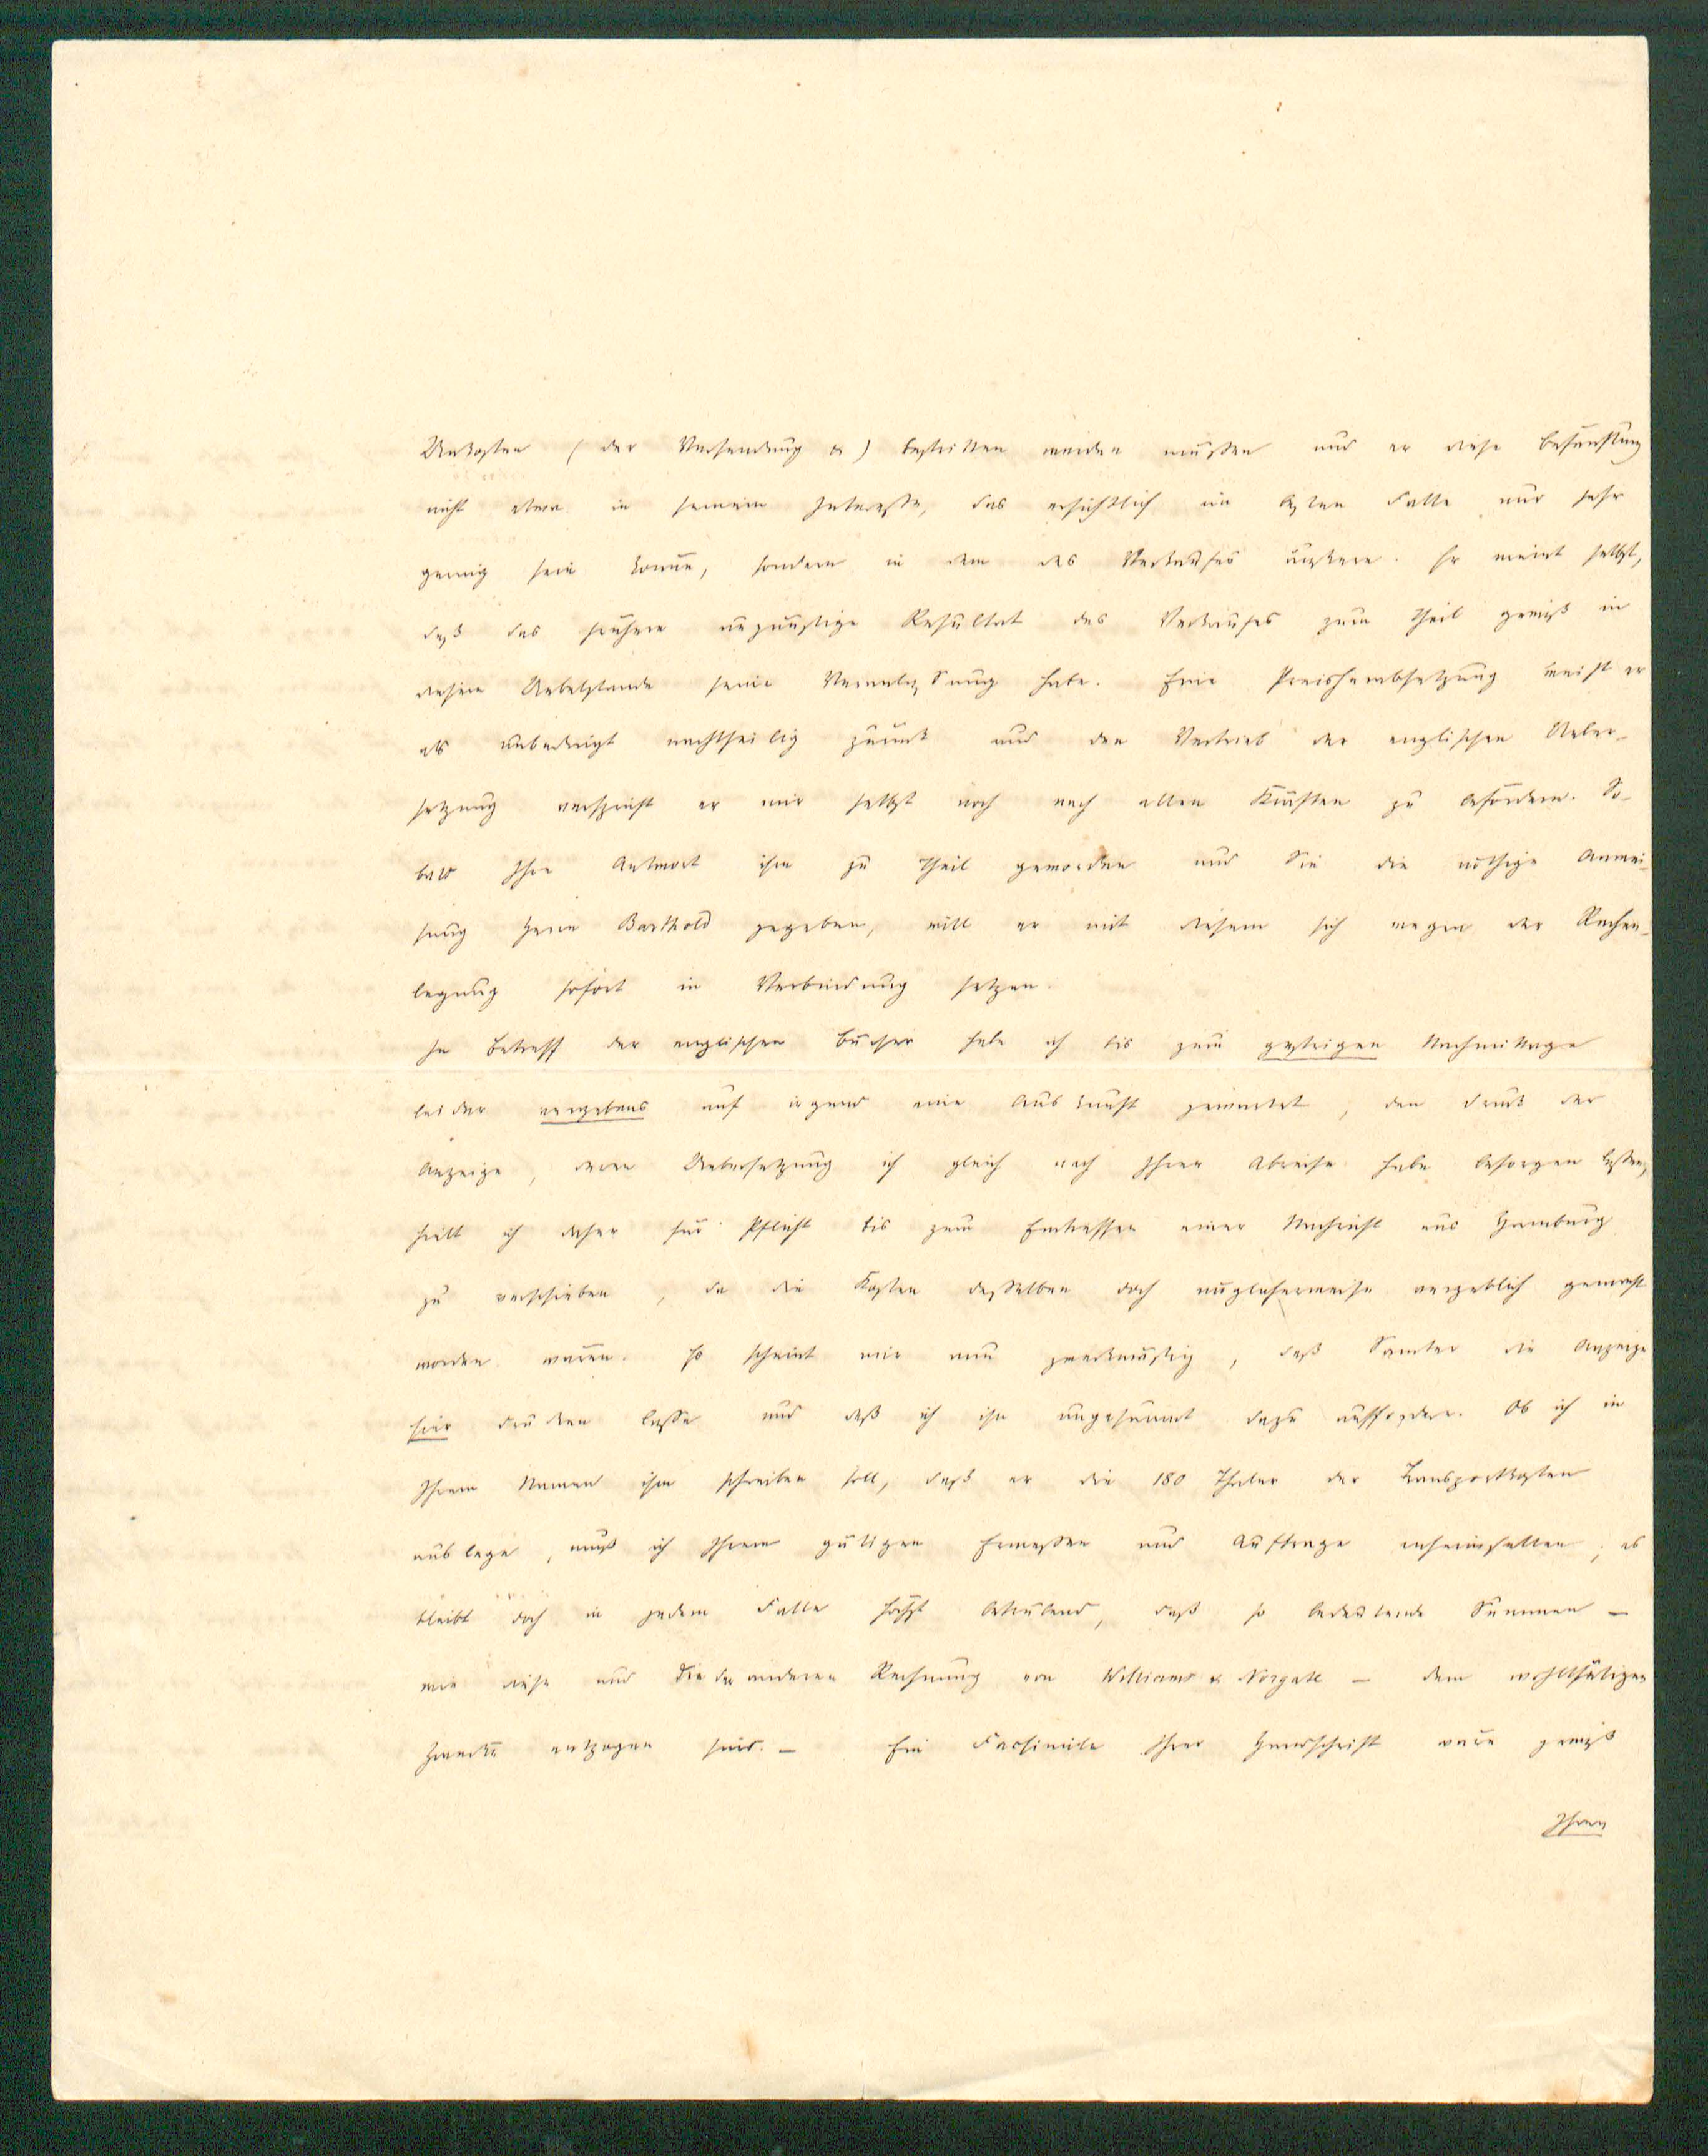 Unkosten (der Versendung &) bestritten werden müßten und er diese
nicht etwa in seinem Interesse, das ersichtlich im besten Falle nur sehr
gering sein könne, sondern in dem des Verkaufes äußere. Er meint selbst,
daß das frühere ungünstige Resultat des Verkaufes zum Theil gewiß in
diesem Uebelstande seine Veranlassung habe. Eine Preisherabsetzung weist er
als unbedingt nachtheilig zurück und den Vertrieb der englischen Ueber-
setzung verspricht er mir selbst noch nach allen Kräften zu befördern. So-
bald Ihre Antwort ihm zu Theil geworden und Sie die nöthige Anwei-
sung Herrn Barthold gegeben, will er mit diesem sich wegen der Rechen-
legung sofort in Verbindung setzen.
In Betreff der englischen Bücher habe ich bis zum gestrigen Nachmittage
leider vergebens auf irgend eine Auskunft gewartet, den Druck der
Anzeige, deren Uebersetzung ich gleich nach Ihrer Abreise habe besorgen lassen,
hielt ich daher für Pflicht bis zum Eintreffen einer Nachricht aus Hamburg
zu verschieben, da die Kosten desselben doch möglicherweise vergeblich gemacht
worden wären. Es scheint mir nun zweckmäßig, daß Samter die Anzeige
hier drucken lasse und daß ich ihn ungesäumt dazu auffordere. Ob ich in
Ihrem Namen ihm schreiben soll, daß er die 180 Thaler der Transportkosten
auslege, muß ich Ihrem gütigen Ermessen und Auftrage anheimstellen; es
bleibt doch in jedem Falle höchst betrübend, daß so bedeutende Summen —
wie diese und die der anderen Rechnung von Williams & Norgate — dem wohlthätigen
Zwecke entzogen sind. — Ein Facsimile Ihrer Handschrift wäre gewiß
Ihren